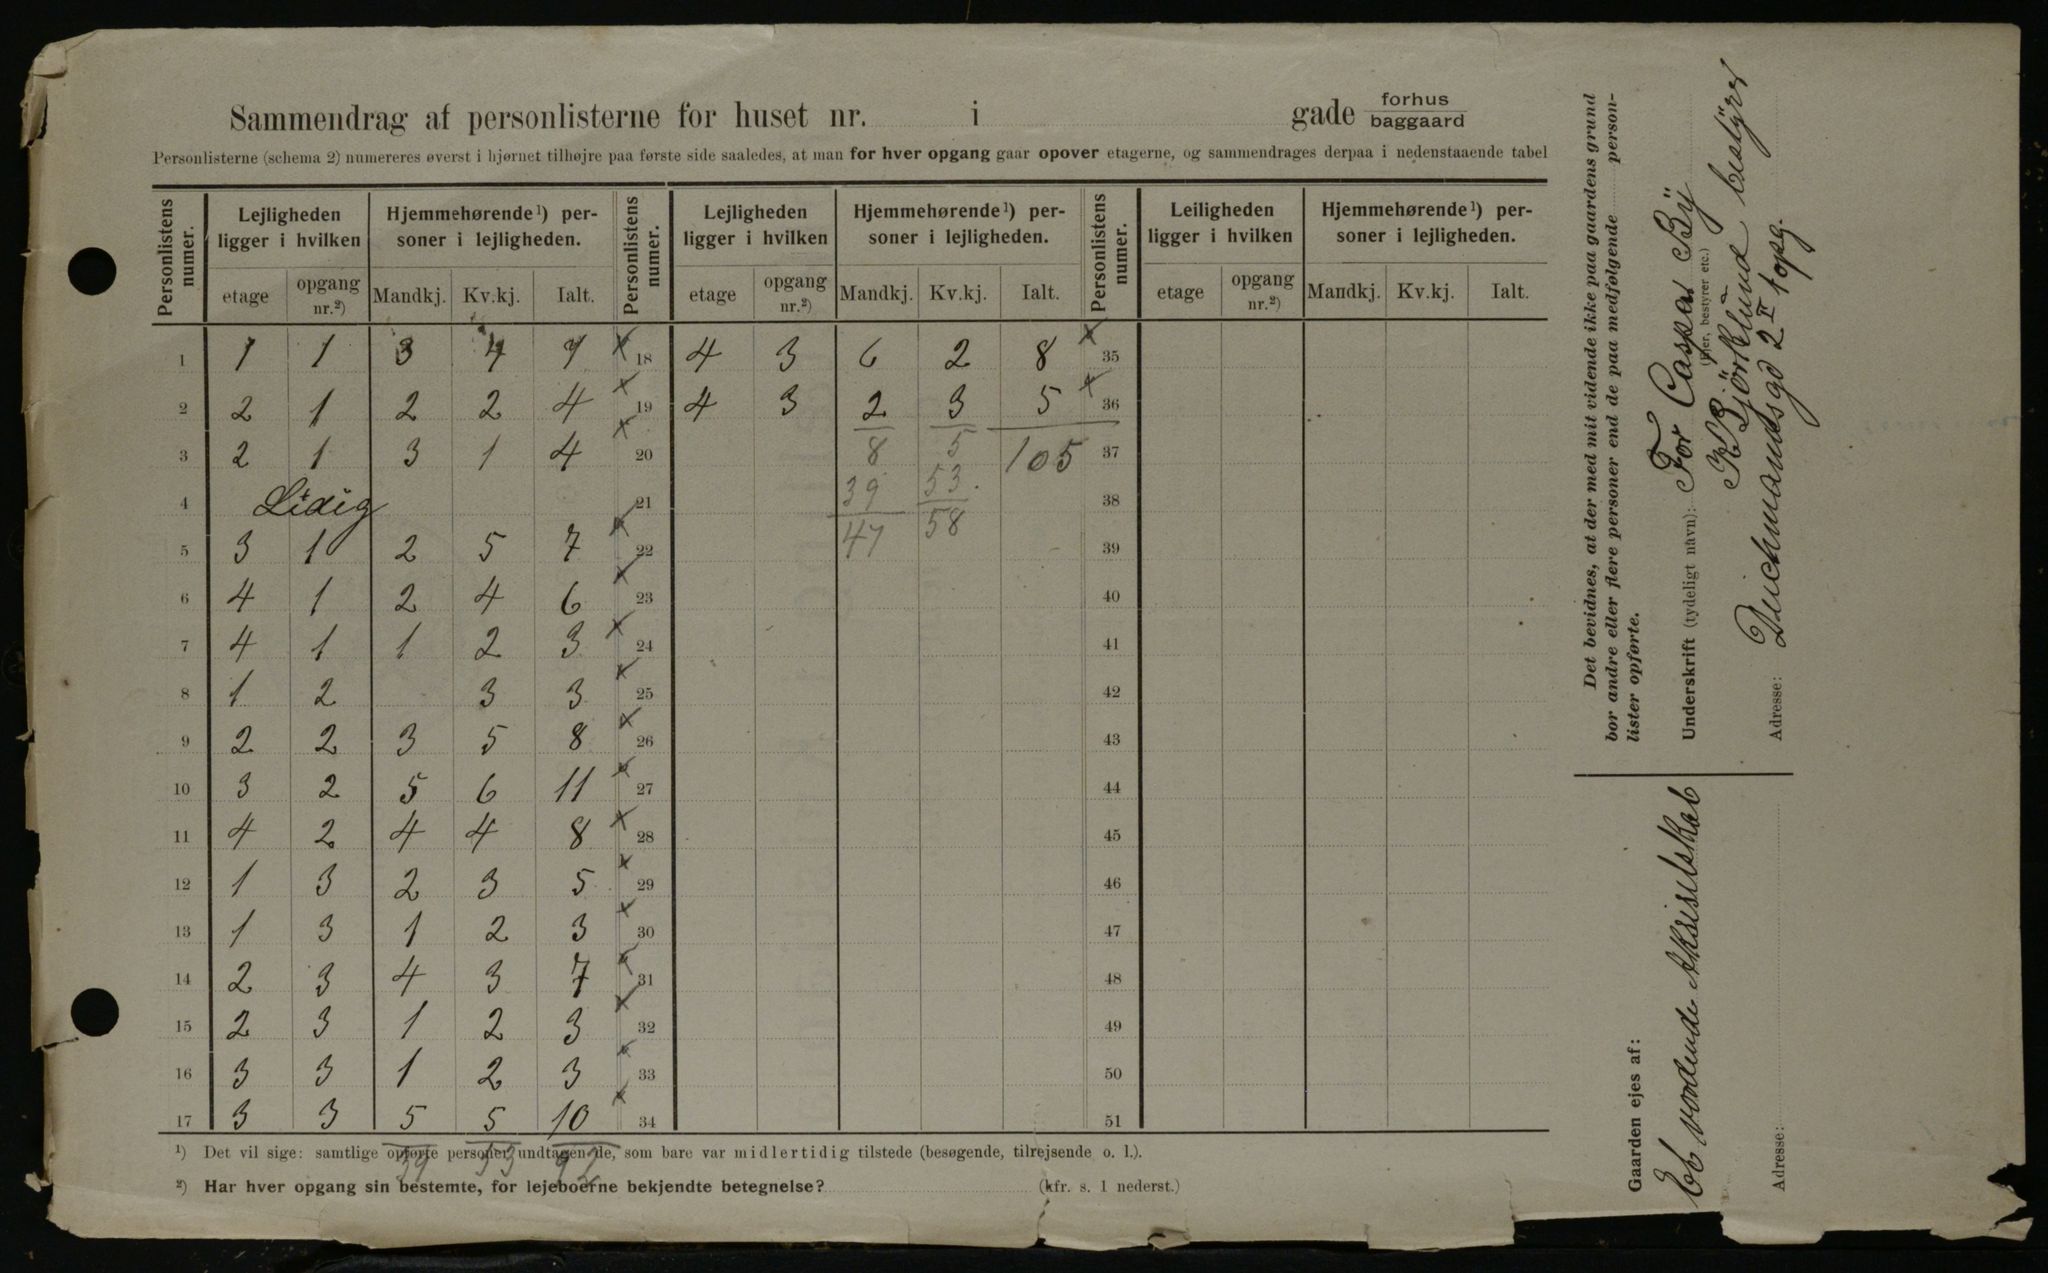 Sammendrag af personlisterne for huset nr. i gade forhus baggaard
Personlisterne (schema 2) numereres øverst i hjørnet tilhøjre paa første side saaledes, at man for hver opgang gaar opover etagerne, og sammendrages derpaa i nedenstaaende tabel
Personlistens numer. Lejligheden ligger i hvilken Hjemmehørende ¹) personer i lejligheden. Personlistens numer. Lejligheden ligger i hvilken Hjemmehørende ¹) personer i lejligheden. Personlistens numer. Leiligheden ligger i hvilken Hjemmehørende ¹) personer i lejligheden.
etage opgang nr.²) Mandkj. Kv.kj. Ialt. etage opgang nr.²) Mandkj. Kv.kj. Ialt. etage opgang nr.²) Mandkj. Kv.kj. Ialt.
1 1 1 3 4 7 x 18 4 3 6 2 8 x 35
2 2 1 2 2 4 x 19 4 3 2 3 5 x 36
3 2 1 3 1 4 x 20 8 5 105 37
4 Ledig 21 39 53. 38
5 3 1 2 5 7 x 22 47 58 39
6 4 1 2 4 6 x 23 40
7 4 1 1 2 3 x 24 41
8 1 2 3 3 x 25 42
9 2 2 3 5 8 x 26 43
10 3 2 5 6 11 x 27 44
11 4 2 4 4 8 x 28 45
12 1 3 2 3 5 x 29 46
13 1 3 1 2 3 x 30 47
14 2 3 4 3 7 x 31 48
15 2 3 1 2 3 x 32 49
16 3 3 1 2 3 x 33 50
17 3 3 5 5 10 x 34 51
39 53 92
¹) Det vil sige: samtlige opførte personer undtagen de, som bare var midlertidig tilstede (besøgende, tilrejsende o. l.).
²) Har hver opgang sin bestemte, for lejeboerne bekjendte betegnelse? (kfr. s. 1 nederst.)
Det bevidnes, at der med mit vidende ikke paa gaardens grund
bor andre eller flere personer end de paa medfølgende person-
lister opførte.
Underskrift (tydeligt navn): For Caspar By
(Ejer, bestyrer etc.)
K Björklund bestyrer
Adresse: Deichmandsgd 2 II 1 opg.
Gaarden ejes af:
Et vordende Aktieselskab
Adresse: